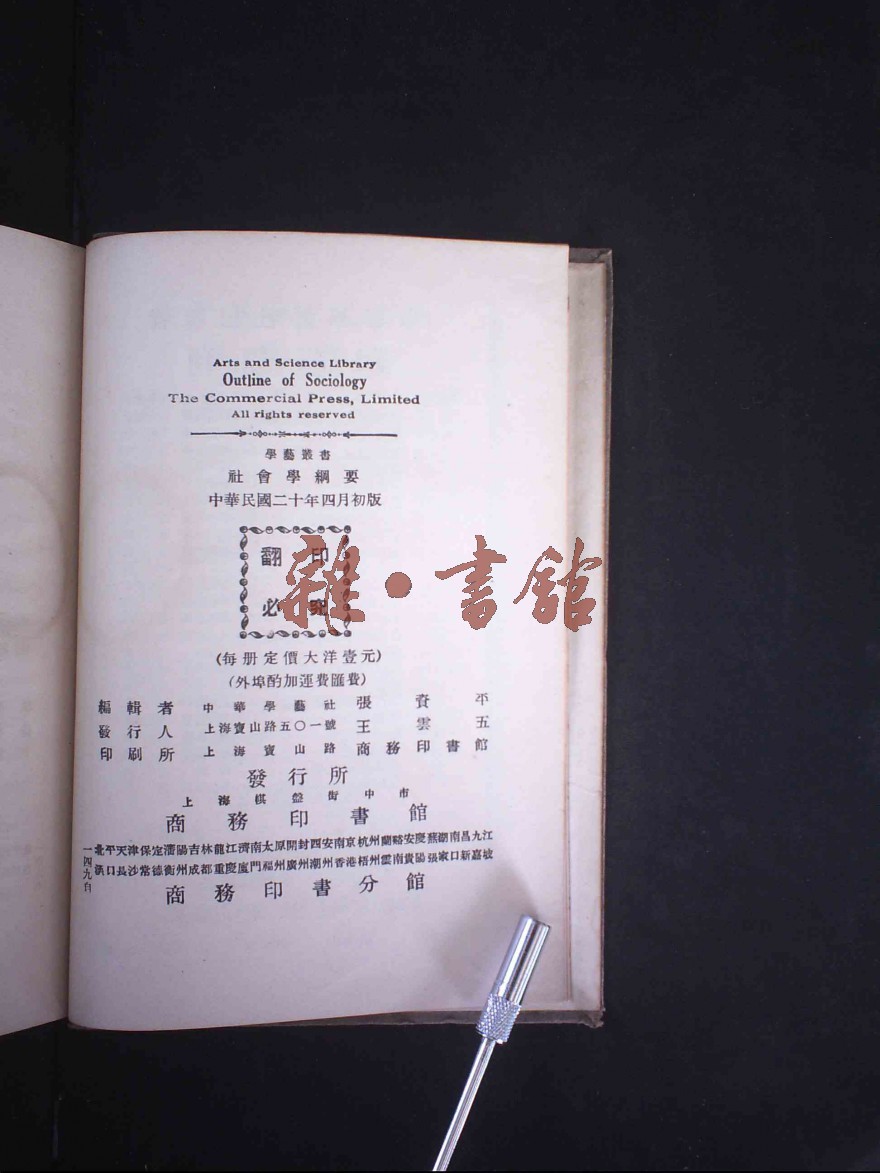 Arts and Science Library
Outline of Sociology
The Commercial Press, Limited
All rights reserved
學藝叢書
社會學綱要
中華民國二十年四月初版
翻印
必究
雜·書館
(每册定價大洋壹元)
(外埠酌加運費匯費)
編輯者 中華學藝社 張資平
發行人 上海寶山路五〇一號 王雲五
印刷所 上海寶山路 商務印書館
發行所
上海棋盤街中市
商務印書館
北平天津保定瀋陽吉林龍江濟南太原開封西安南京杭州蘭谿安慶蕪湖南昌九江
漢口長沙常德衡州成都重慶廈門福州廣州潮州香港梧州雲南貴陽張家口新嘉坡
商務印書分館
一四九自